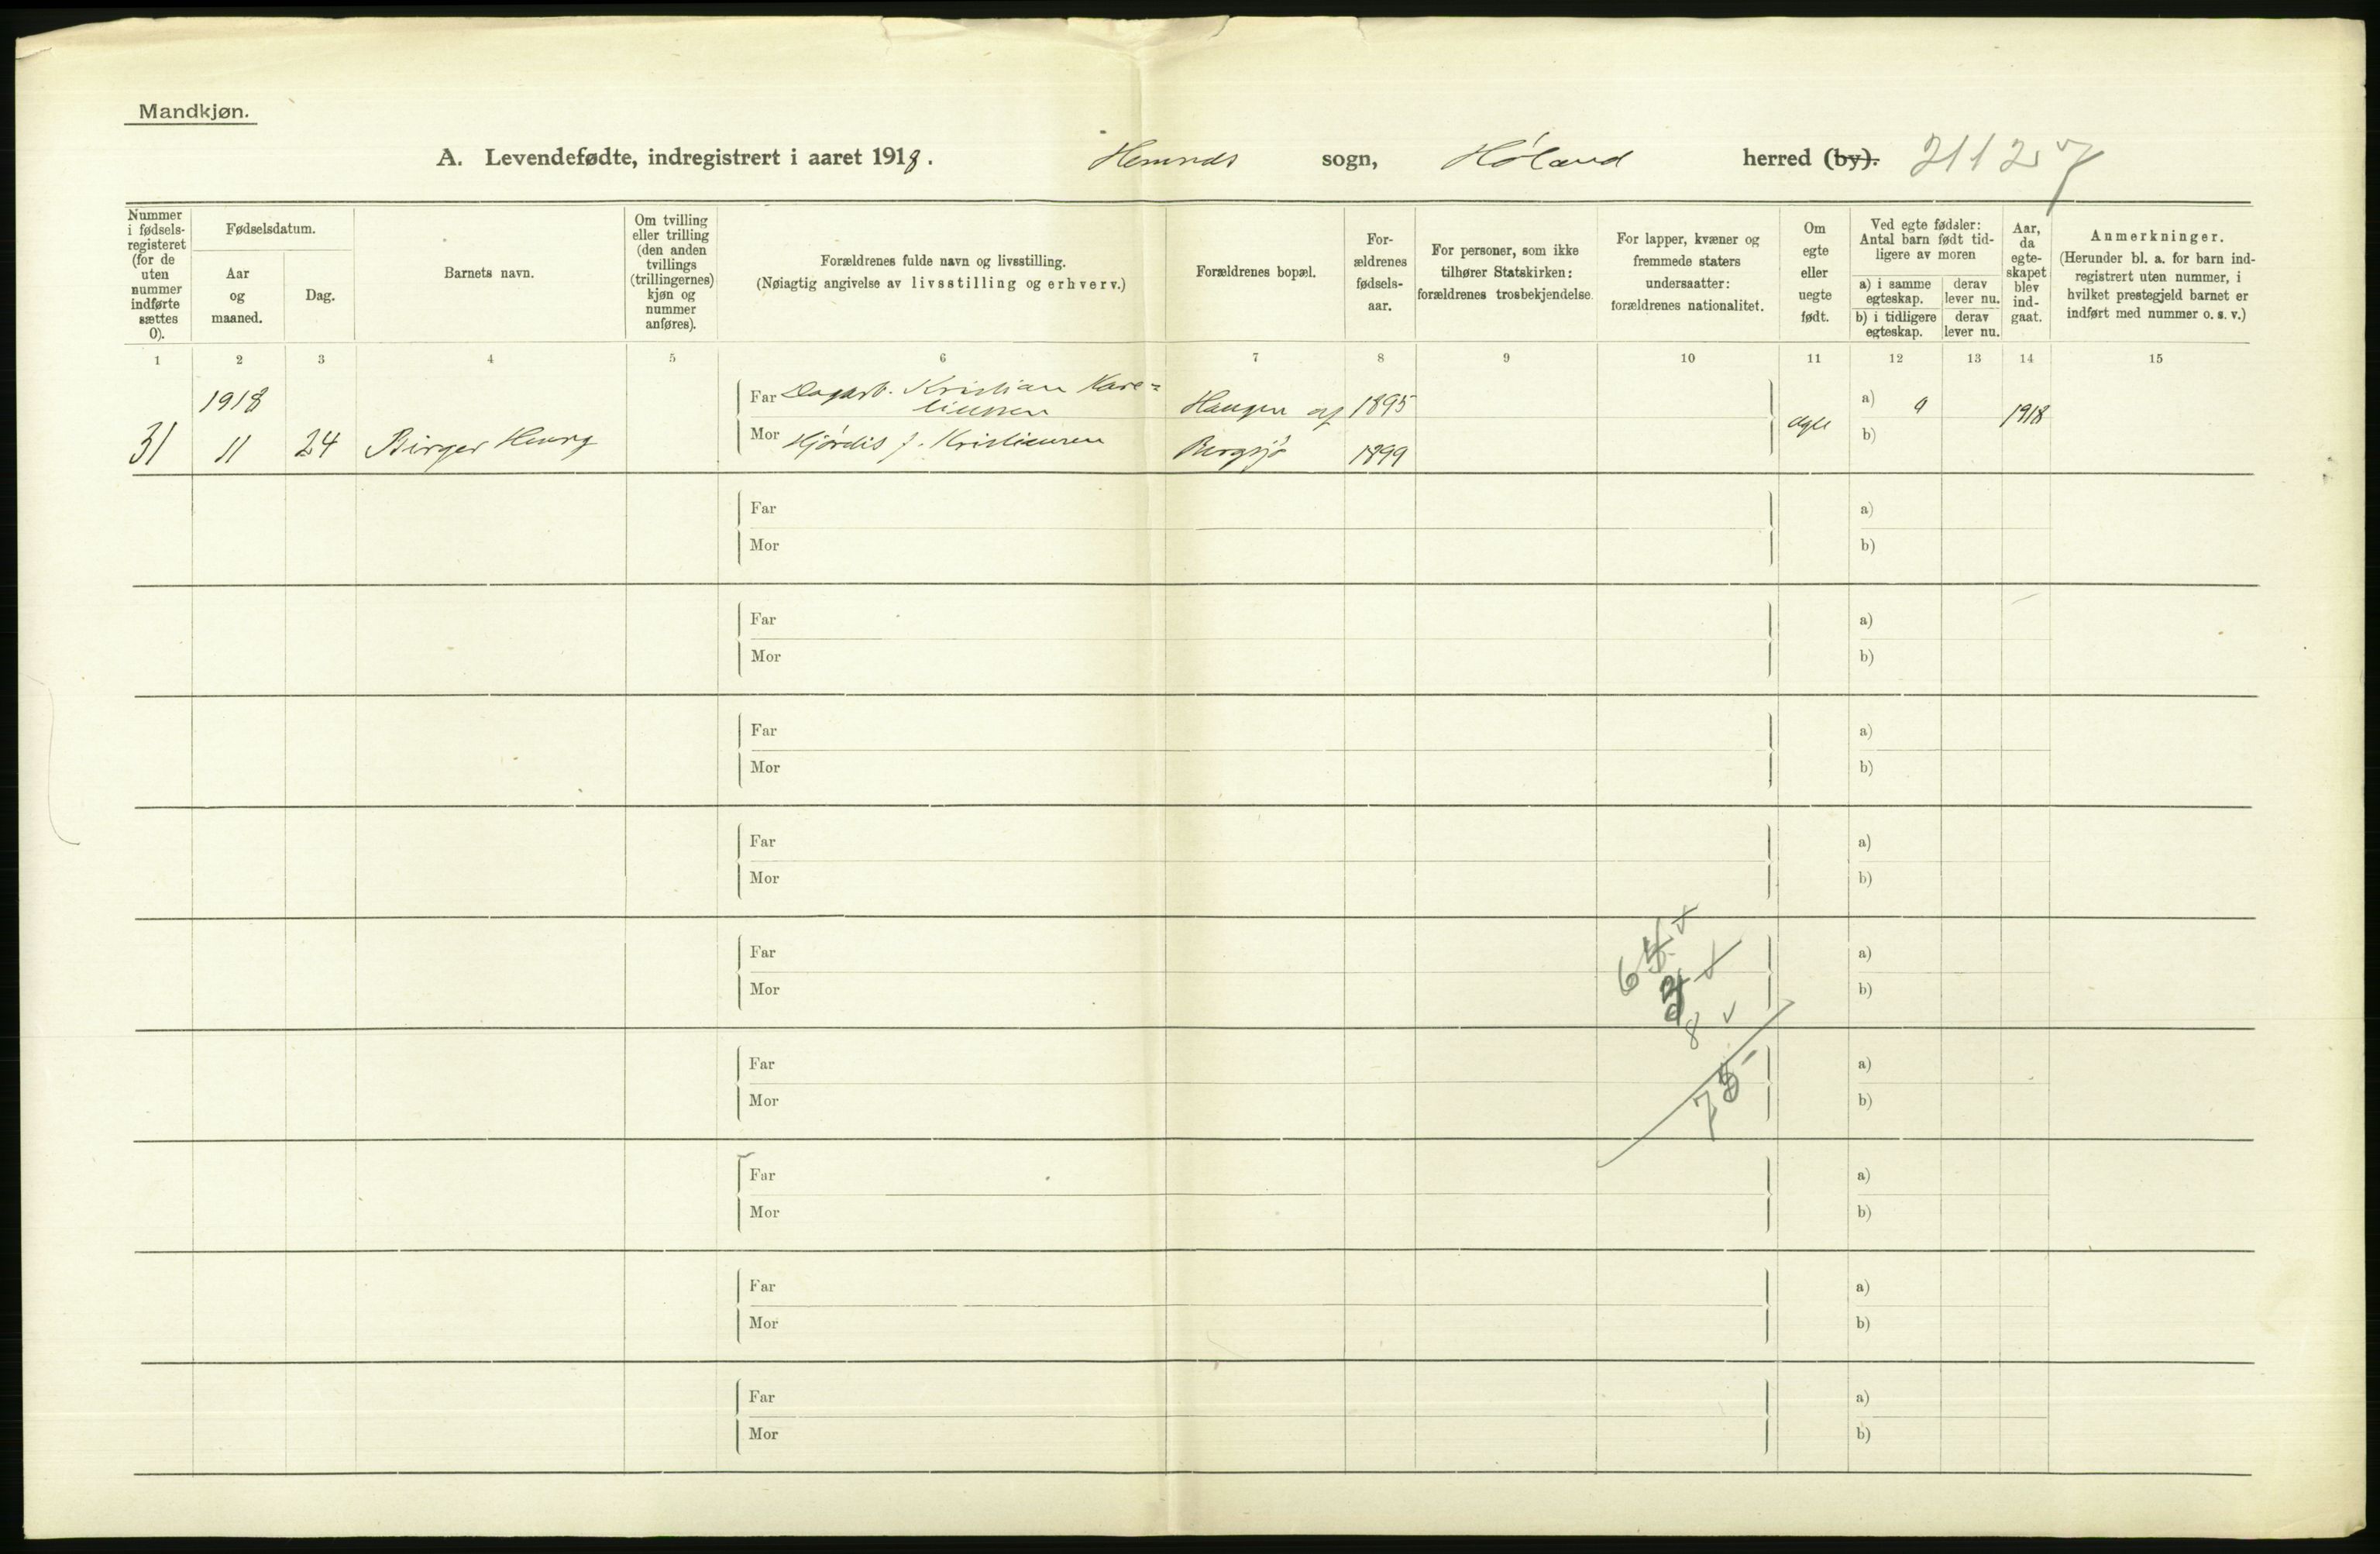 Mandkjøn.
A. Levendefødte, indregistrert i aaret 1918. Hemnes sogn, Høland herred (by). 21125
Nummer i fødsels-registeret (for de uten nummer indførte sættes 0).
Fødselsdatum.
Aar og maaned.
Dag.
Barnets navn.
Om tvilling eller trilling (den anden tvillings (trillingernes) kjøn og nummer anføres).
Forældrenes fulde navn og livsstilling.
(Nøiagtig angivelse av livsstilling og erhverv.)
Forældrenes bopæl.
For-ældrenes fødsels-aar.
For personer, som ikke tilhører Statskirken: forældrenes trosbekjendelse.
For lapper, kvæner og fremmede staters undersaatter: forældrenes nationalitet.
Om egte eller uegte født.
Ved egte fødsler: Antal barn født tid-ligere av moren
a) i samme egteskap.
derav lever nu.
b) i tidligere egteskap.
derav lever nu.
Aar, da egte-skapet blev ind-gaat.
Anmerkninger.
(Herunder bl. a. for barn ind-registrert uten nummer, i hvilket prestegjeld barnet er indført med nummer o. s. v.)
1 2 3 4 5 6 7 8 9 10 11 12 13 14 15
1918 Far Dagarb. Kristian Kare=
Haugen af 1895 a) 0 1918
31 11 24 Birger Henry Mor Hjørdis f. Kristiansen Bergsjø 1899 egte b)
Far a)
Mor b)
Far a)
Mor b)
Far a)
Mor b)
Far a)
Mor b)
Far a)
Mor b)
8
Far a)
Mor 75 b)
Far a)
Mor b)
Far a)
Mor b)
Far a)
Mor b)